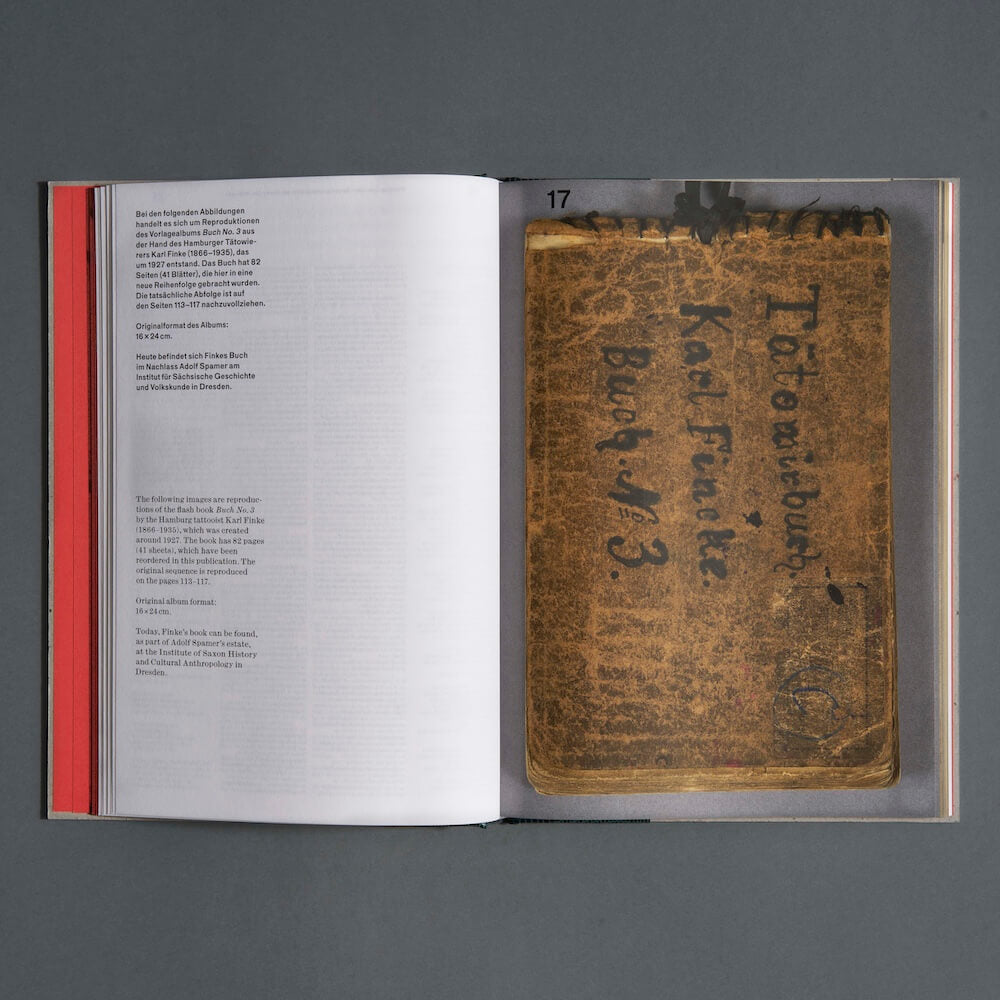 Bei den folgenden Abbildungen
handelt es sich um Reproduktionen
des Vorlagealbums Buch No. 3 aus
der Hand des Hamburger Tätowie-
rers Karl Finke (1866–1935), das
um 1927 entstand. Das Buch hat 82
Seiten (41 Blätter), die hier in eine
neue Reihenfolge gebracht wurden.
Die tatsächliche Abfolge ist auf
den Seiten 113–117 nachzuvollziehen.
Originalformat des Albums:
16 × 24 cm.
Heute befindet sich Finkes Buch
im Nachlass Adolf Spamer am
Institut für Sächsische Geschichte
und Volkskunde in Dresden.
The following images are reproduc-
tions of the flash book Buch No. 3
by the Hamburg tattooist Karl Finke
(1866–1935), which was created
around 1927. The book has 82 pages
(41 sheets), which have been
reordered in this publication. The
original sequence is reproduced
on the pages 113–117.
Original album format:
16 × 24 cm.
Today, Finke's book can be found,
as part of Adolf Spamer's estate,
at the Institute of Saxon History
and Cultural Anthropology in
Dresden.
17
Tätowirbuch.
Karl Fincke.
Buch. № 3.